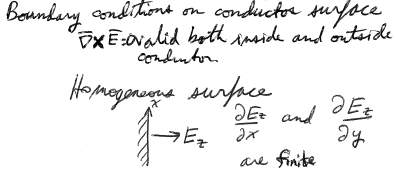 Boundary conditions on conductor surface
∇̄×Ē=0 valid both inside and outside
conductor
Homogeneous surface
x
→ E_z ∂E_z/∂x and ∂E_z/∂y
are finite